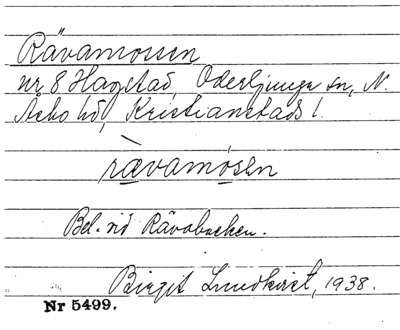 Rävamossen
nr 8 Hagstad, Oderljunga sn, N.
Åsbo hd, Kristianstads l.
rävamosen
Bel. vid Rävabacken.
Birgit Lundkvist, 1938.
Nr 5499.